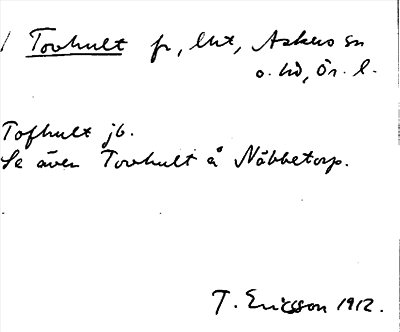 Tovhult fr, lht, Askers sn
o. hd, Ör. l.
Tofhult jb.
Se även Tovhult å Näbbetorp.
T. Ericsson 1912.